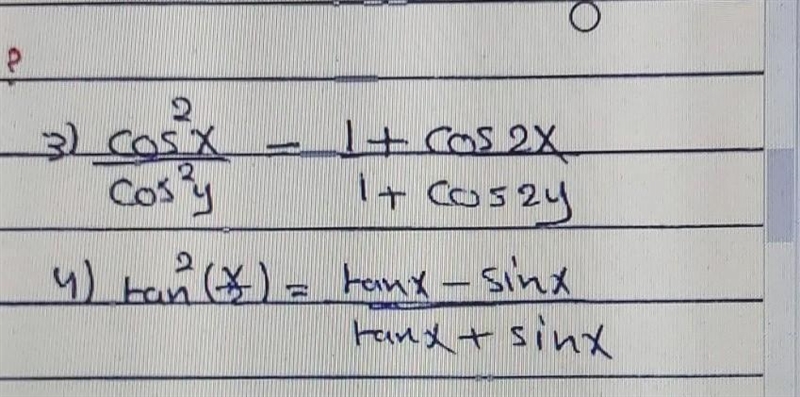 ?
3) cos²x/cos²y - 1 + cos2x/1 + cos2y
4) tan²(x/2) = tanx - sinx/tanx + sinx